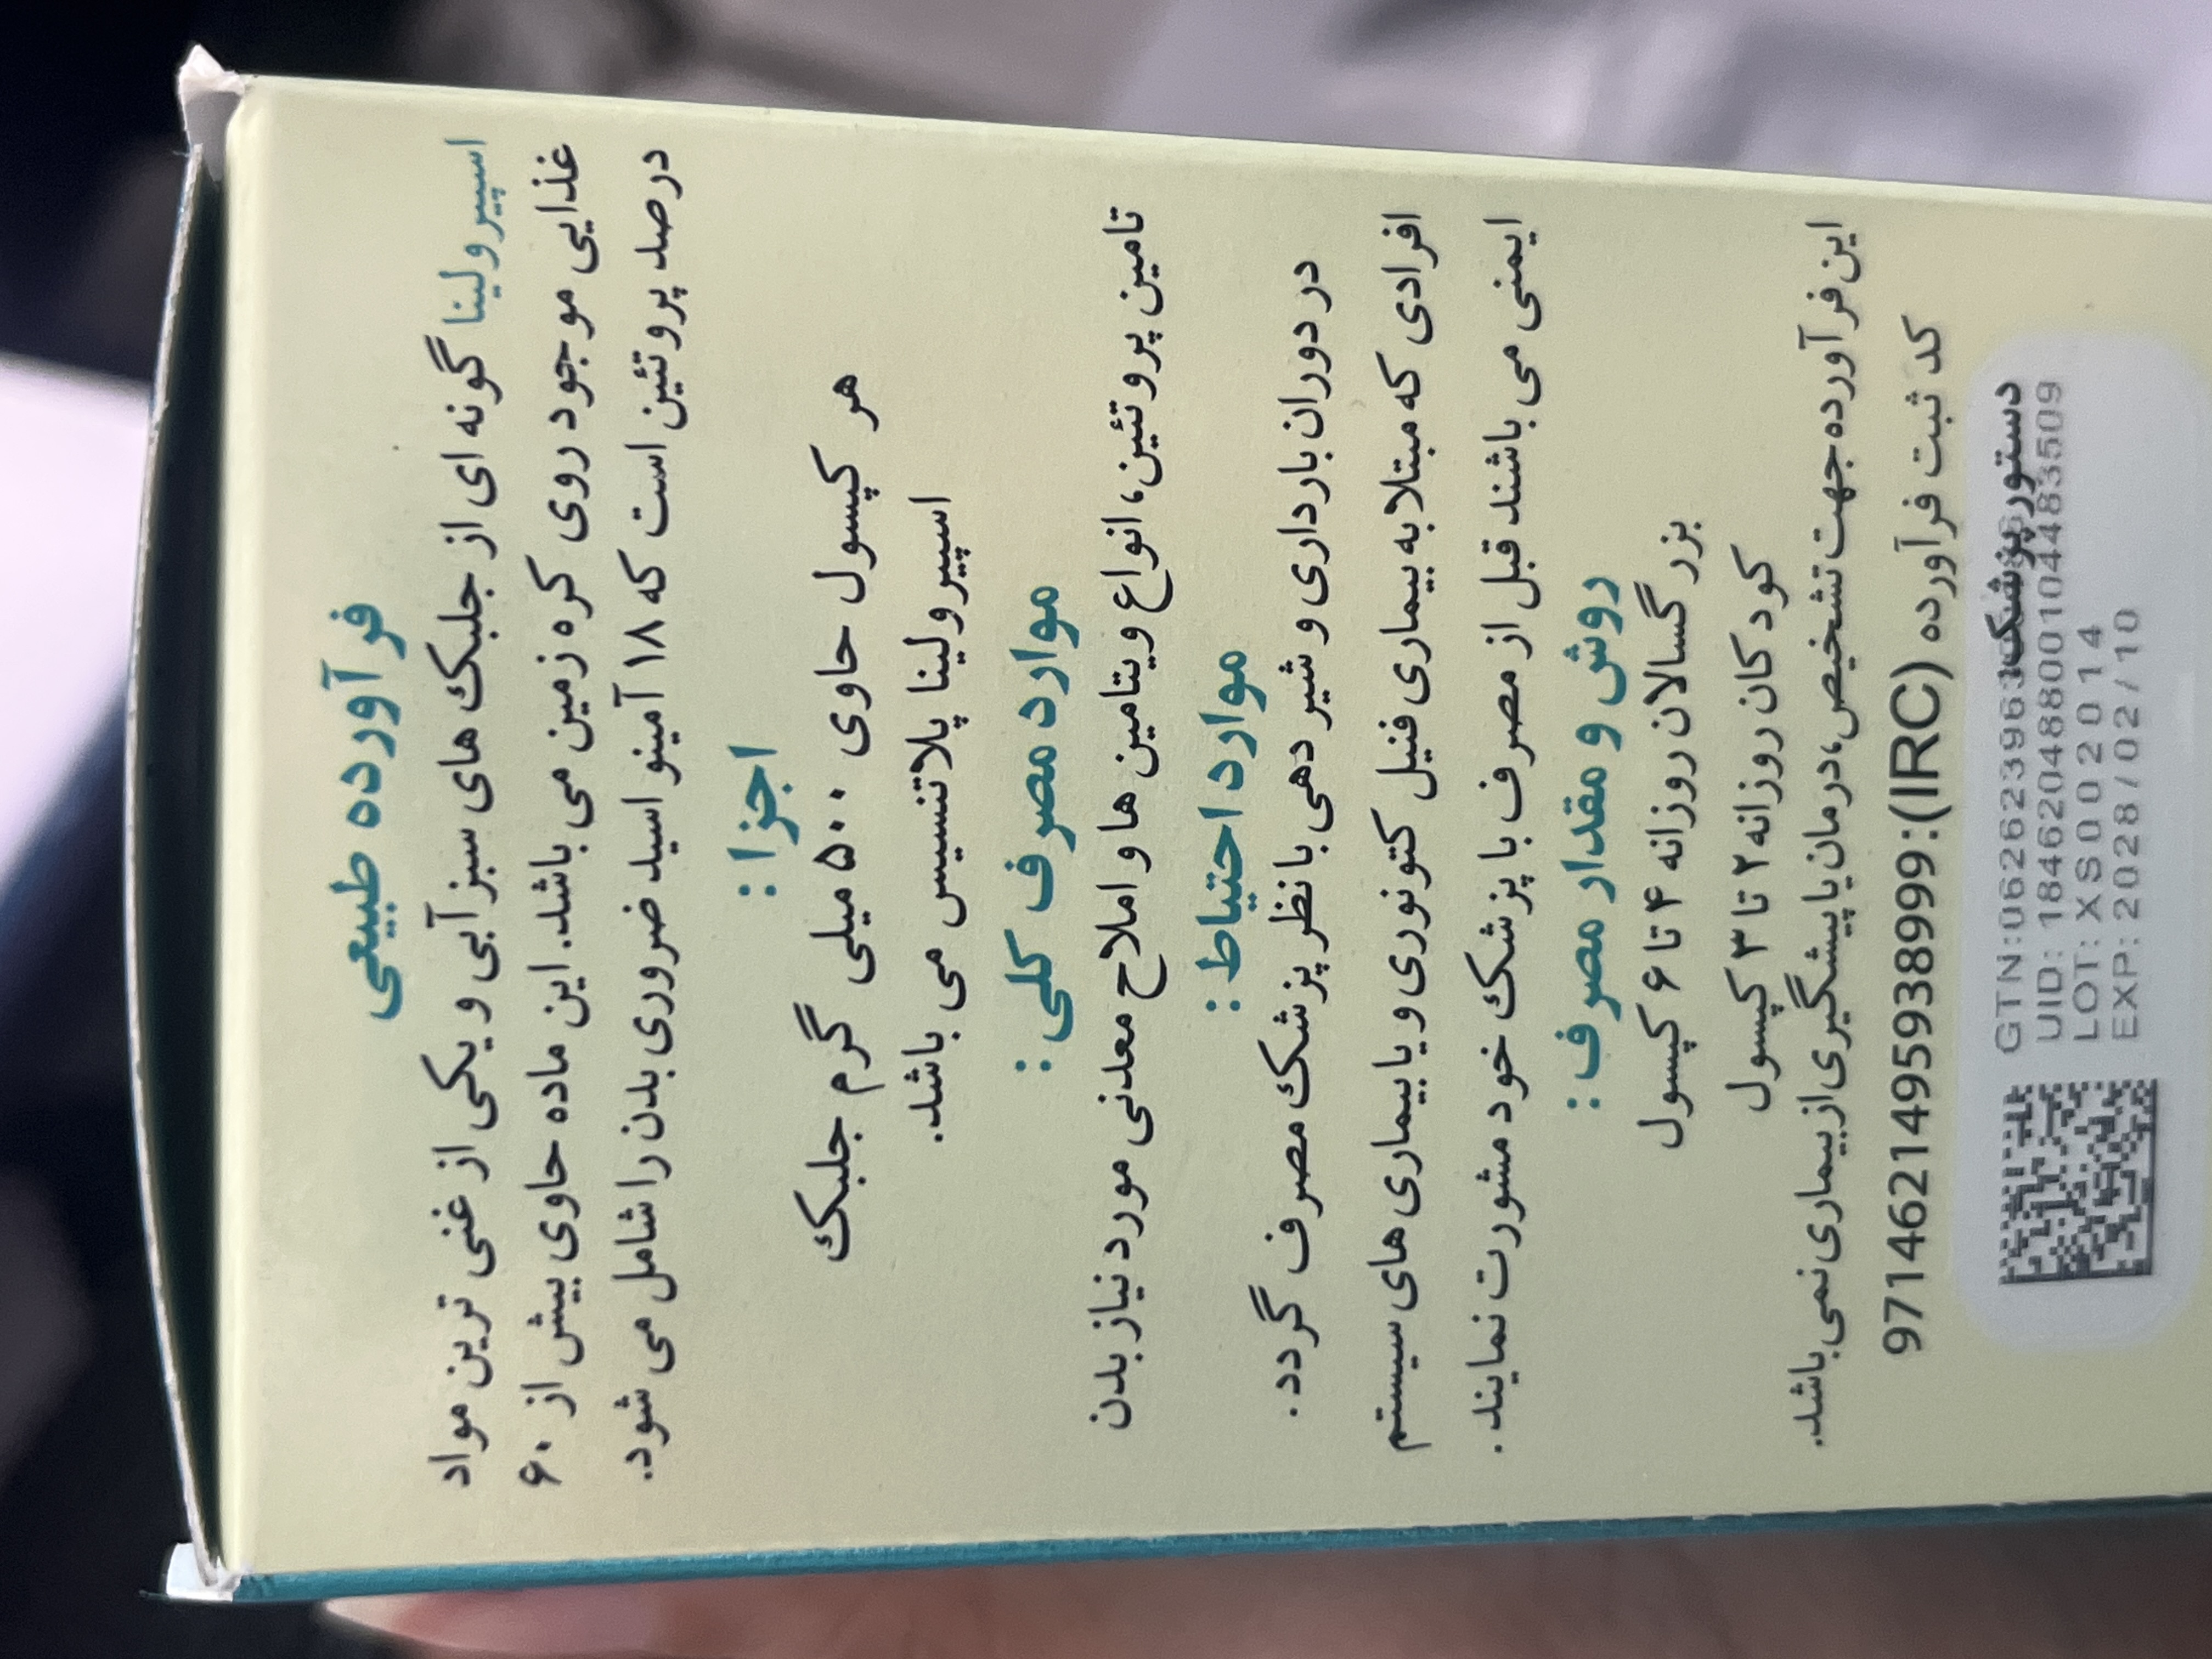 فرآورده طبیعی
اسپیرولینا گونه ای از جلبک های سبز آبی و یکی از غنی ترین مواد
غذایی موجود روی کره زمین می باشد. این ماده حاوی بیش از ۶۰
درصد پروتئین است که ۱۸ آمینو اسید ضروری بدن را شامل می شود.
اجزا :
هر کپسول حاوی ۵۰۰ میلی گرم جلبک
اسپیرولینا پلاتنسیس می باشد.
موارد مصرف کلی :
تامین پروتئین، انواع ویتامین ها و املاح معدنی مورد نیاز بدن
موارد احتیاط :
در دوران بارداری و شیر دهی با نظر پزشک مصرف گردد .
افرادی که مبتلا به بیماری فنیل کتونوری و یا بیماری های سیستم
ایمنی می باشند قبل از مصرف با پزشک خود مشورت نمایند .
روش و مقدار مصرف :
بزرگسالان روزانه ۴ تا ۶ کپسول
کودکان روزانه ۲ تا ۳ کپسول
این فرآورده جهت تشخیص، درمان یا پیشگیری از بیماری نمی باشد.
کد ثبت فرآورده (IRC): 9714621495938999
دستور پزشک:
GTN:
UID: 18462048800104483509
LOT: XS002014
EXP: 2028/02/10